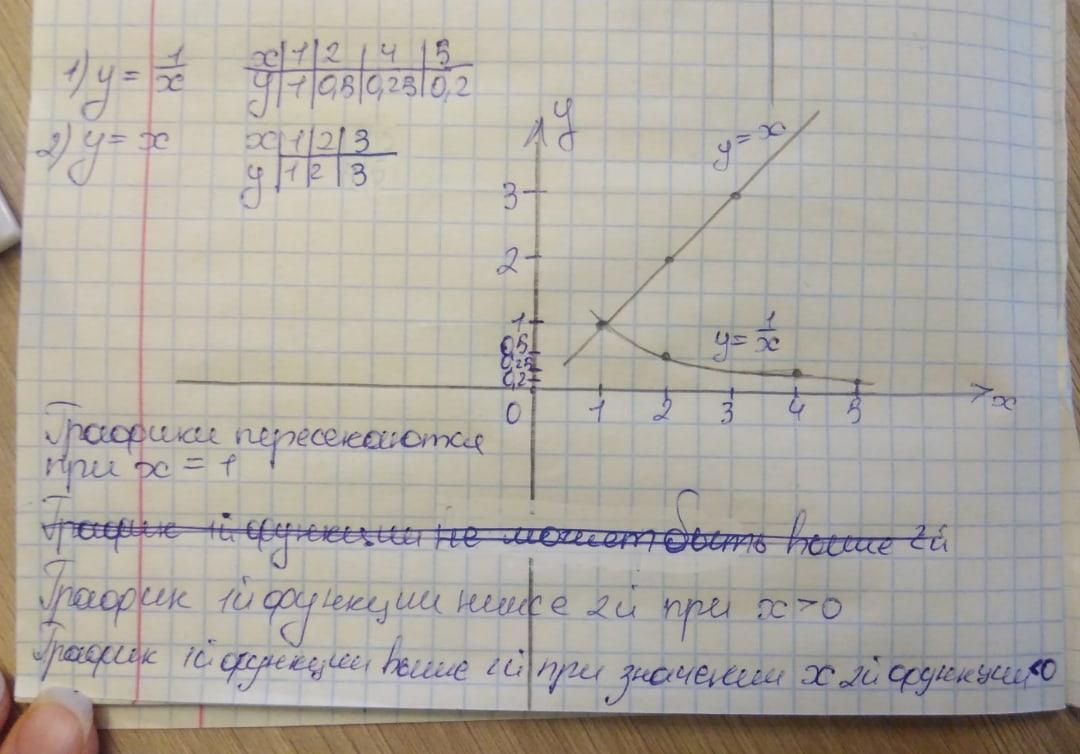 1) y = 1/x
x 1 2 4 5
y 1 0,5 0,25 0,2
2) y = x
x 1 2 3
y 1 2 3
y
y = x
3
2
1
0,5
0,25
0,2
y = 1/x
0 1 2 3 4 5 x
Графики пересекаются
при x = 1
График 1й функции не может быть выше 2й
График 1й функции ниже 2й при x > 0
График 1й функции выше 2й при значении x 2й функции <0